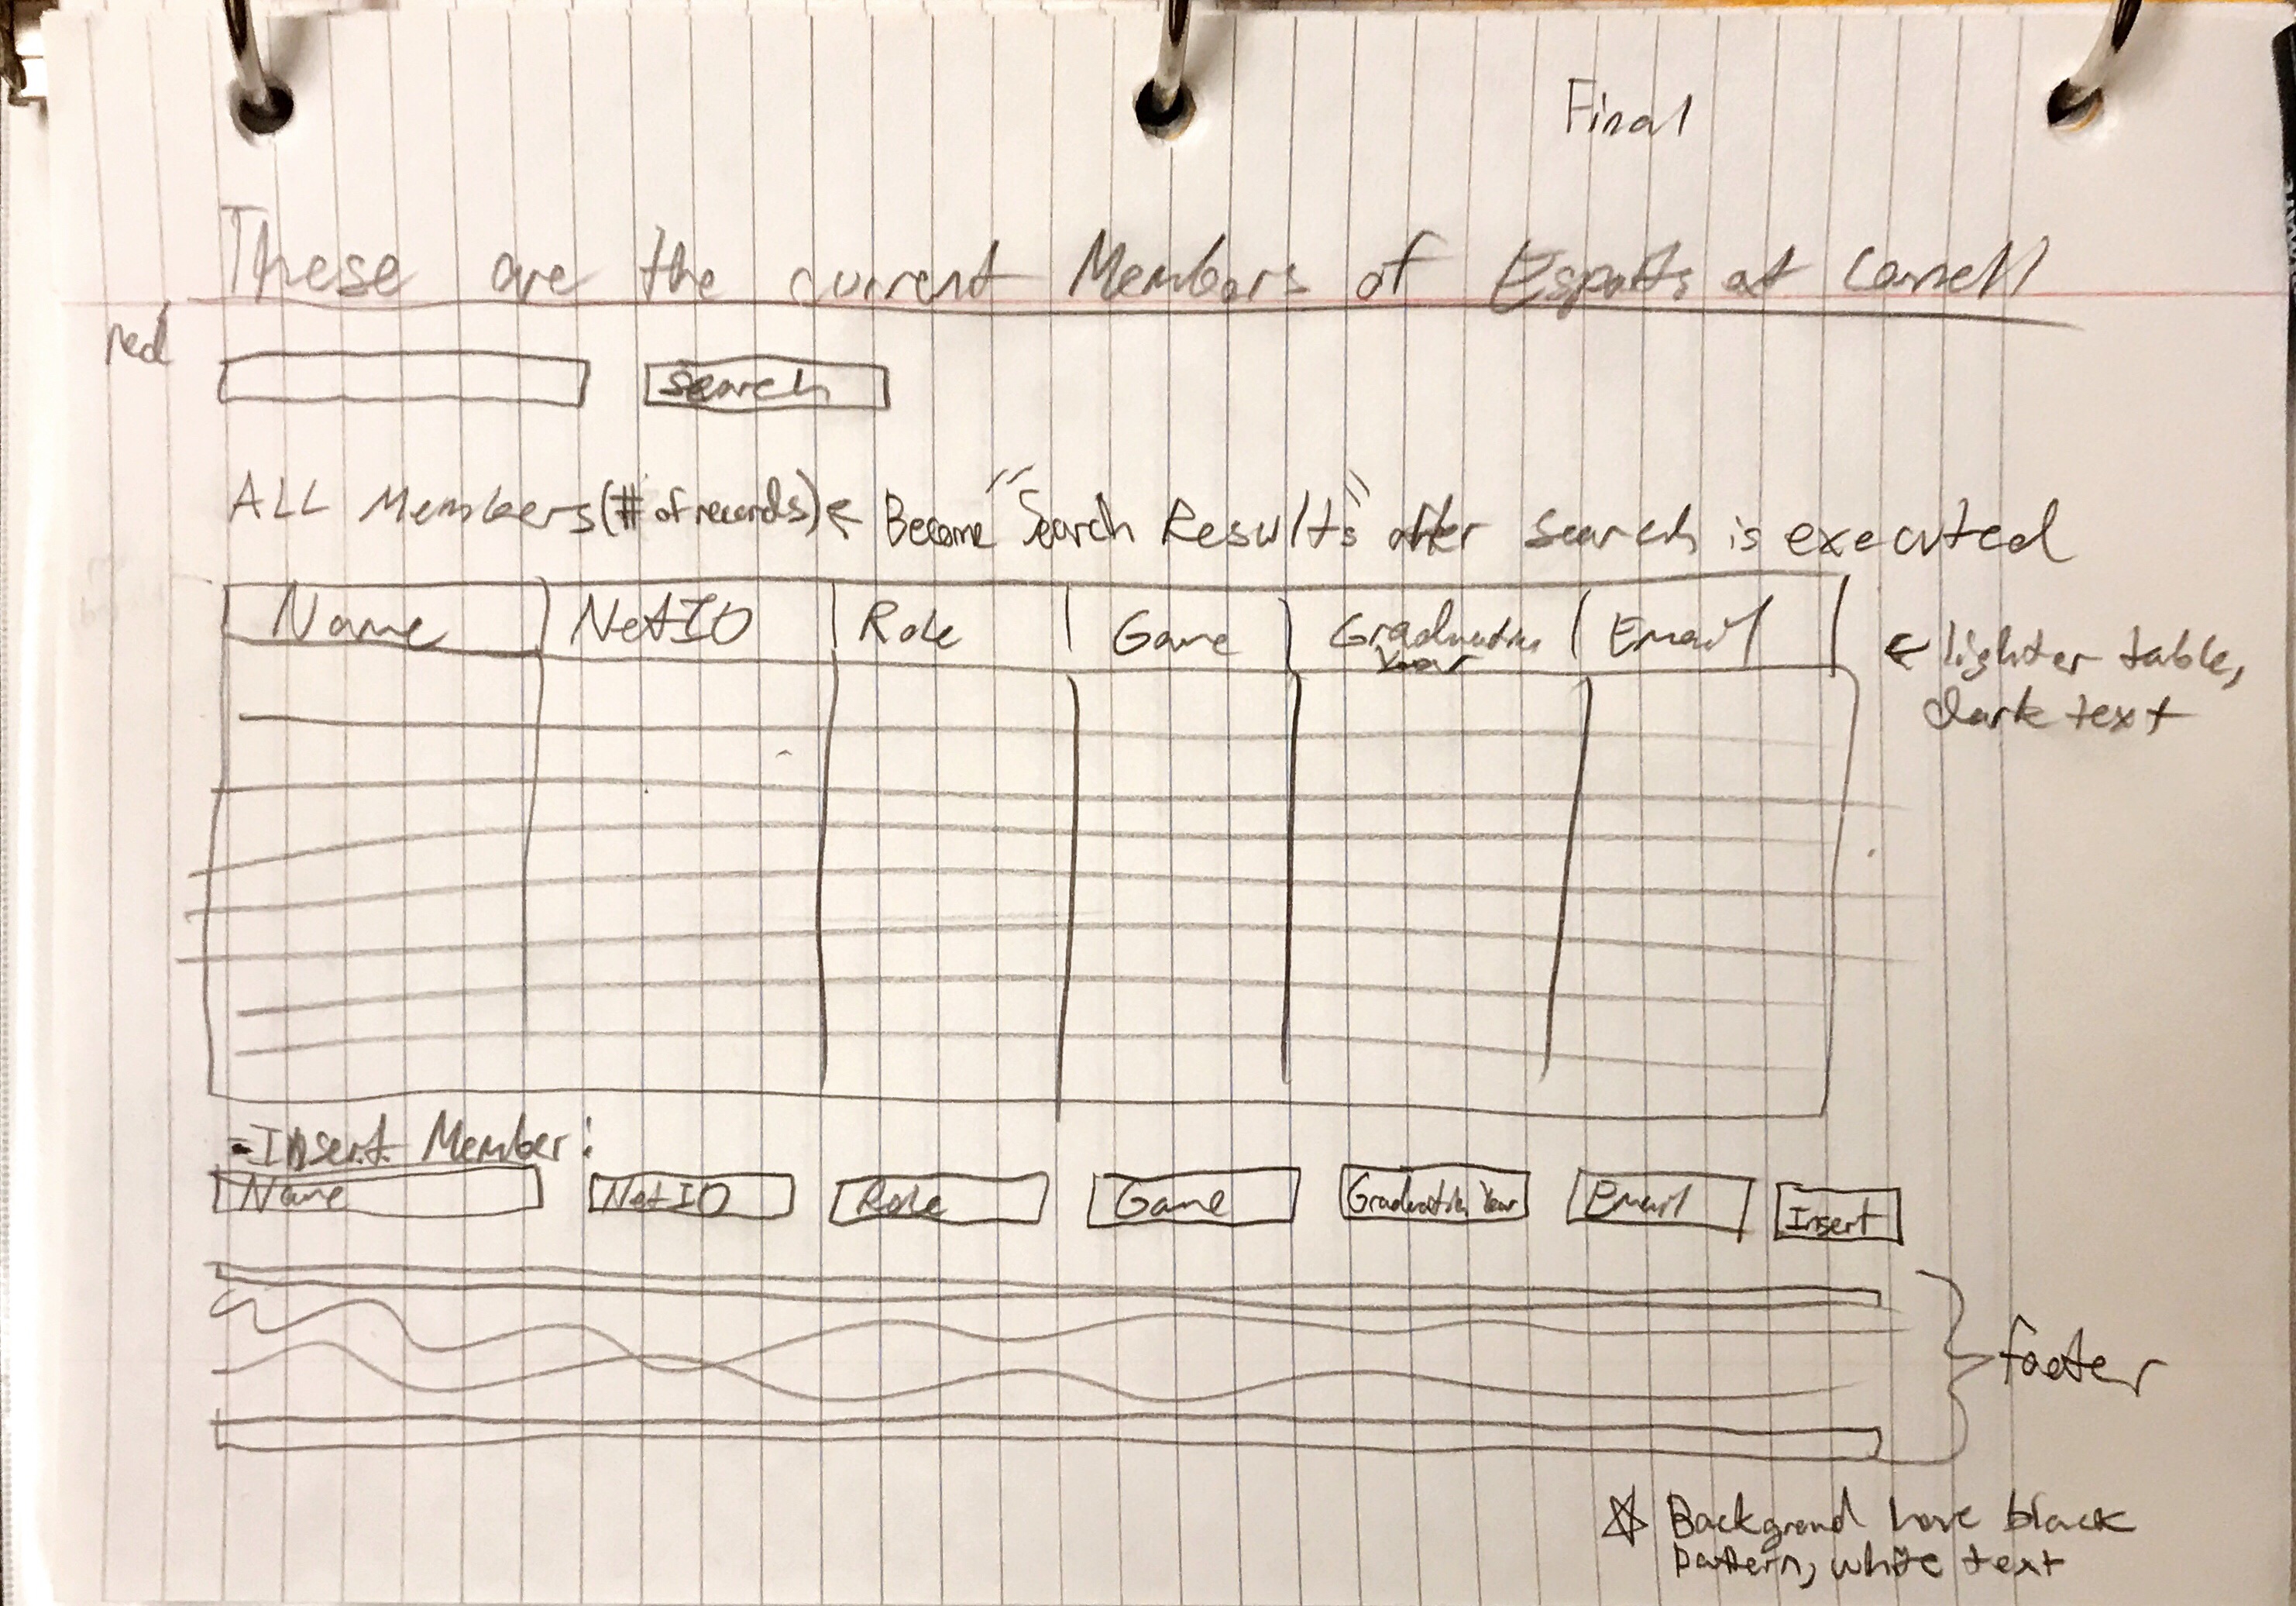 Final
These are the current Members of Esports at Cornell
red
Search
ALL Members (# of records) ← Become "Search Results" after search is executed
Name NetID Role Game Graduation Year Email
← lighter table,
dark text
- Insert Member:
Name NetID Role Game Graduation Year Email Insert
footer
☆ Background have black
pattern, white text